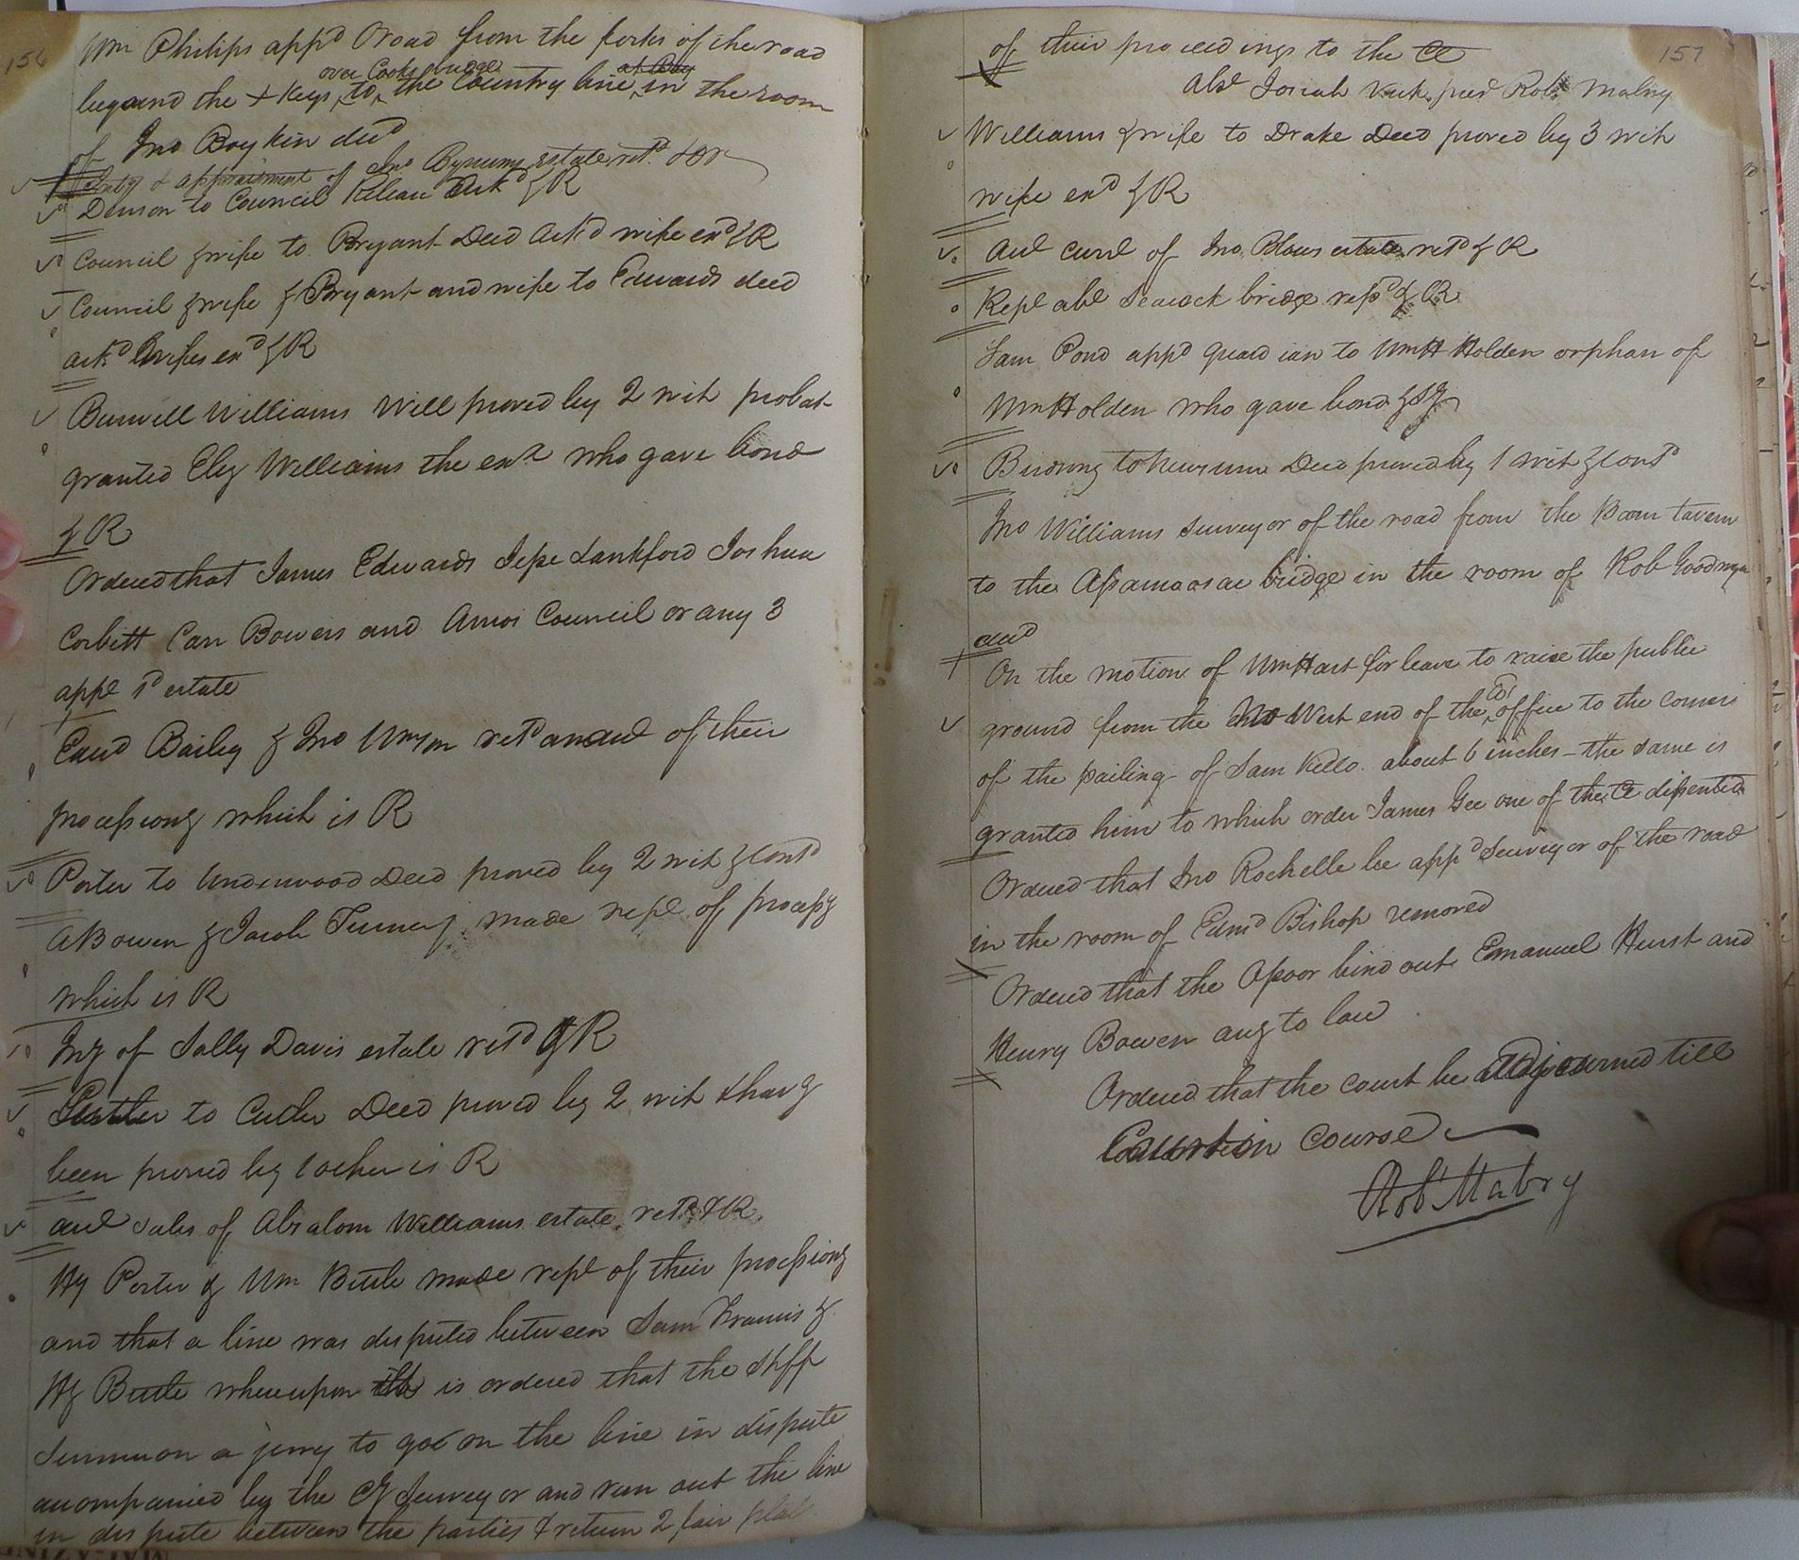 156
Wm Philips appd O road from the forks of the road
beyound the + Keys over Cooks bridge to the Country line in the room
of Jno Boykin decd
Invty & appraisment of Jno Bynums estate retd & OR
Denson to Council Release Ackd & R
Council & wife to Bryant Deed Ackd wife exd & R
Council & wife & Bryant and wife to Edwards deed
ackd wifes exd & R
Burwell Williams Will proved by 2 wit probat
granted Eley Williams the exr who gave bond
& R
Ordered that James Edwards Jesse Lankford Joshua
Corbitt Carr Bowers and Amos Council or any 3
appe sd estate
Edwd Bailey & Jno retd an acct of their
processiong which is R
Porter to Underwood Deed proved by 2 wit & contd
A Bowen & Jacob Turner made rept of processg
which is R
Invy of Sally Davis estate retd & R
to Cutler Deed proved by 2 wit & havg
been proved by 1 other is R
acct sales of Absalom Williams estate retd & R
Hy Porter & Wm Bittle made rept of their processiong
and that a line was disputed between Sam Francis &
Hy Bittle whereupon it is ordered that the Shff
summon a jurry to goe on the line in dispute
accompanied by the Cy Surveyor and run out the line
in dispute between the parties & return 2 fair plats
157
of their proceedings to the Ct
abst Josiah Vick, prest Robt Mabry
Williams & wife to Drake Deed proved by 3 wit
wife exd & R
Act curt of Jno Blows estate retd & R
Rept abt Seacock bridge retd & R
Sam Pond appd guardian to Wm H Holden orphan of
Wm Holden who gave bond &c
Browng to Newsum Deed proved by 1 wit & contd
Jno Williams surveyor of the road from the Barn tavern
to the Assamoosac bridge in the room of Rob Goodwyn
decd
On the motion of Wm Hart for leave to raise the public
ground from the West end of the Cts office to the corner
of the pailing of Sam Kello about 6 inches - the same is
granted him to which order James Gee one of the Ct dissented
Ordered that Jno Rochelle be appd Surveyor of the road
in the room of Edmd Bishop removed
Ordered that the O poor bind out Emanuel Hurst and
Henry Bowen accg to law
Ordered that the court be adjourned till
Court in course
Robt Mabry